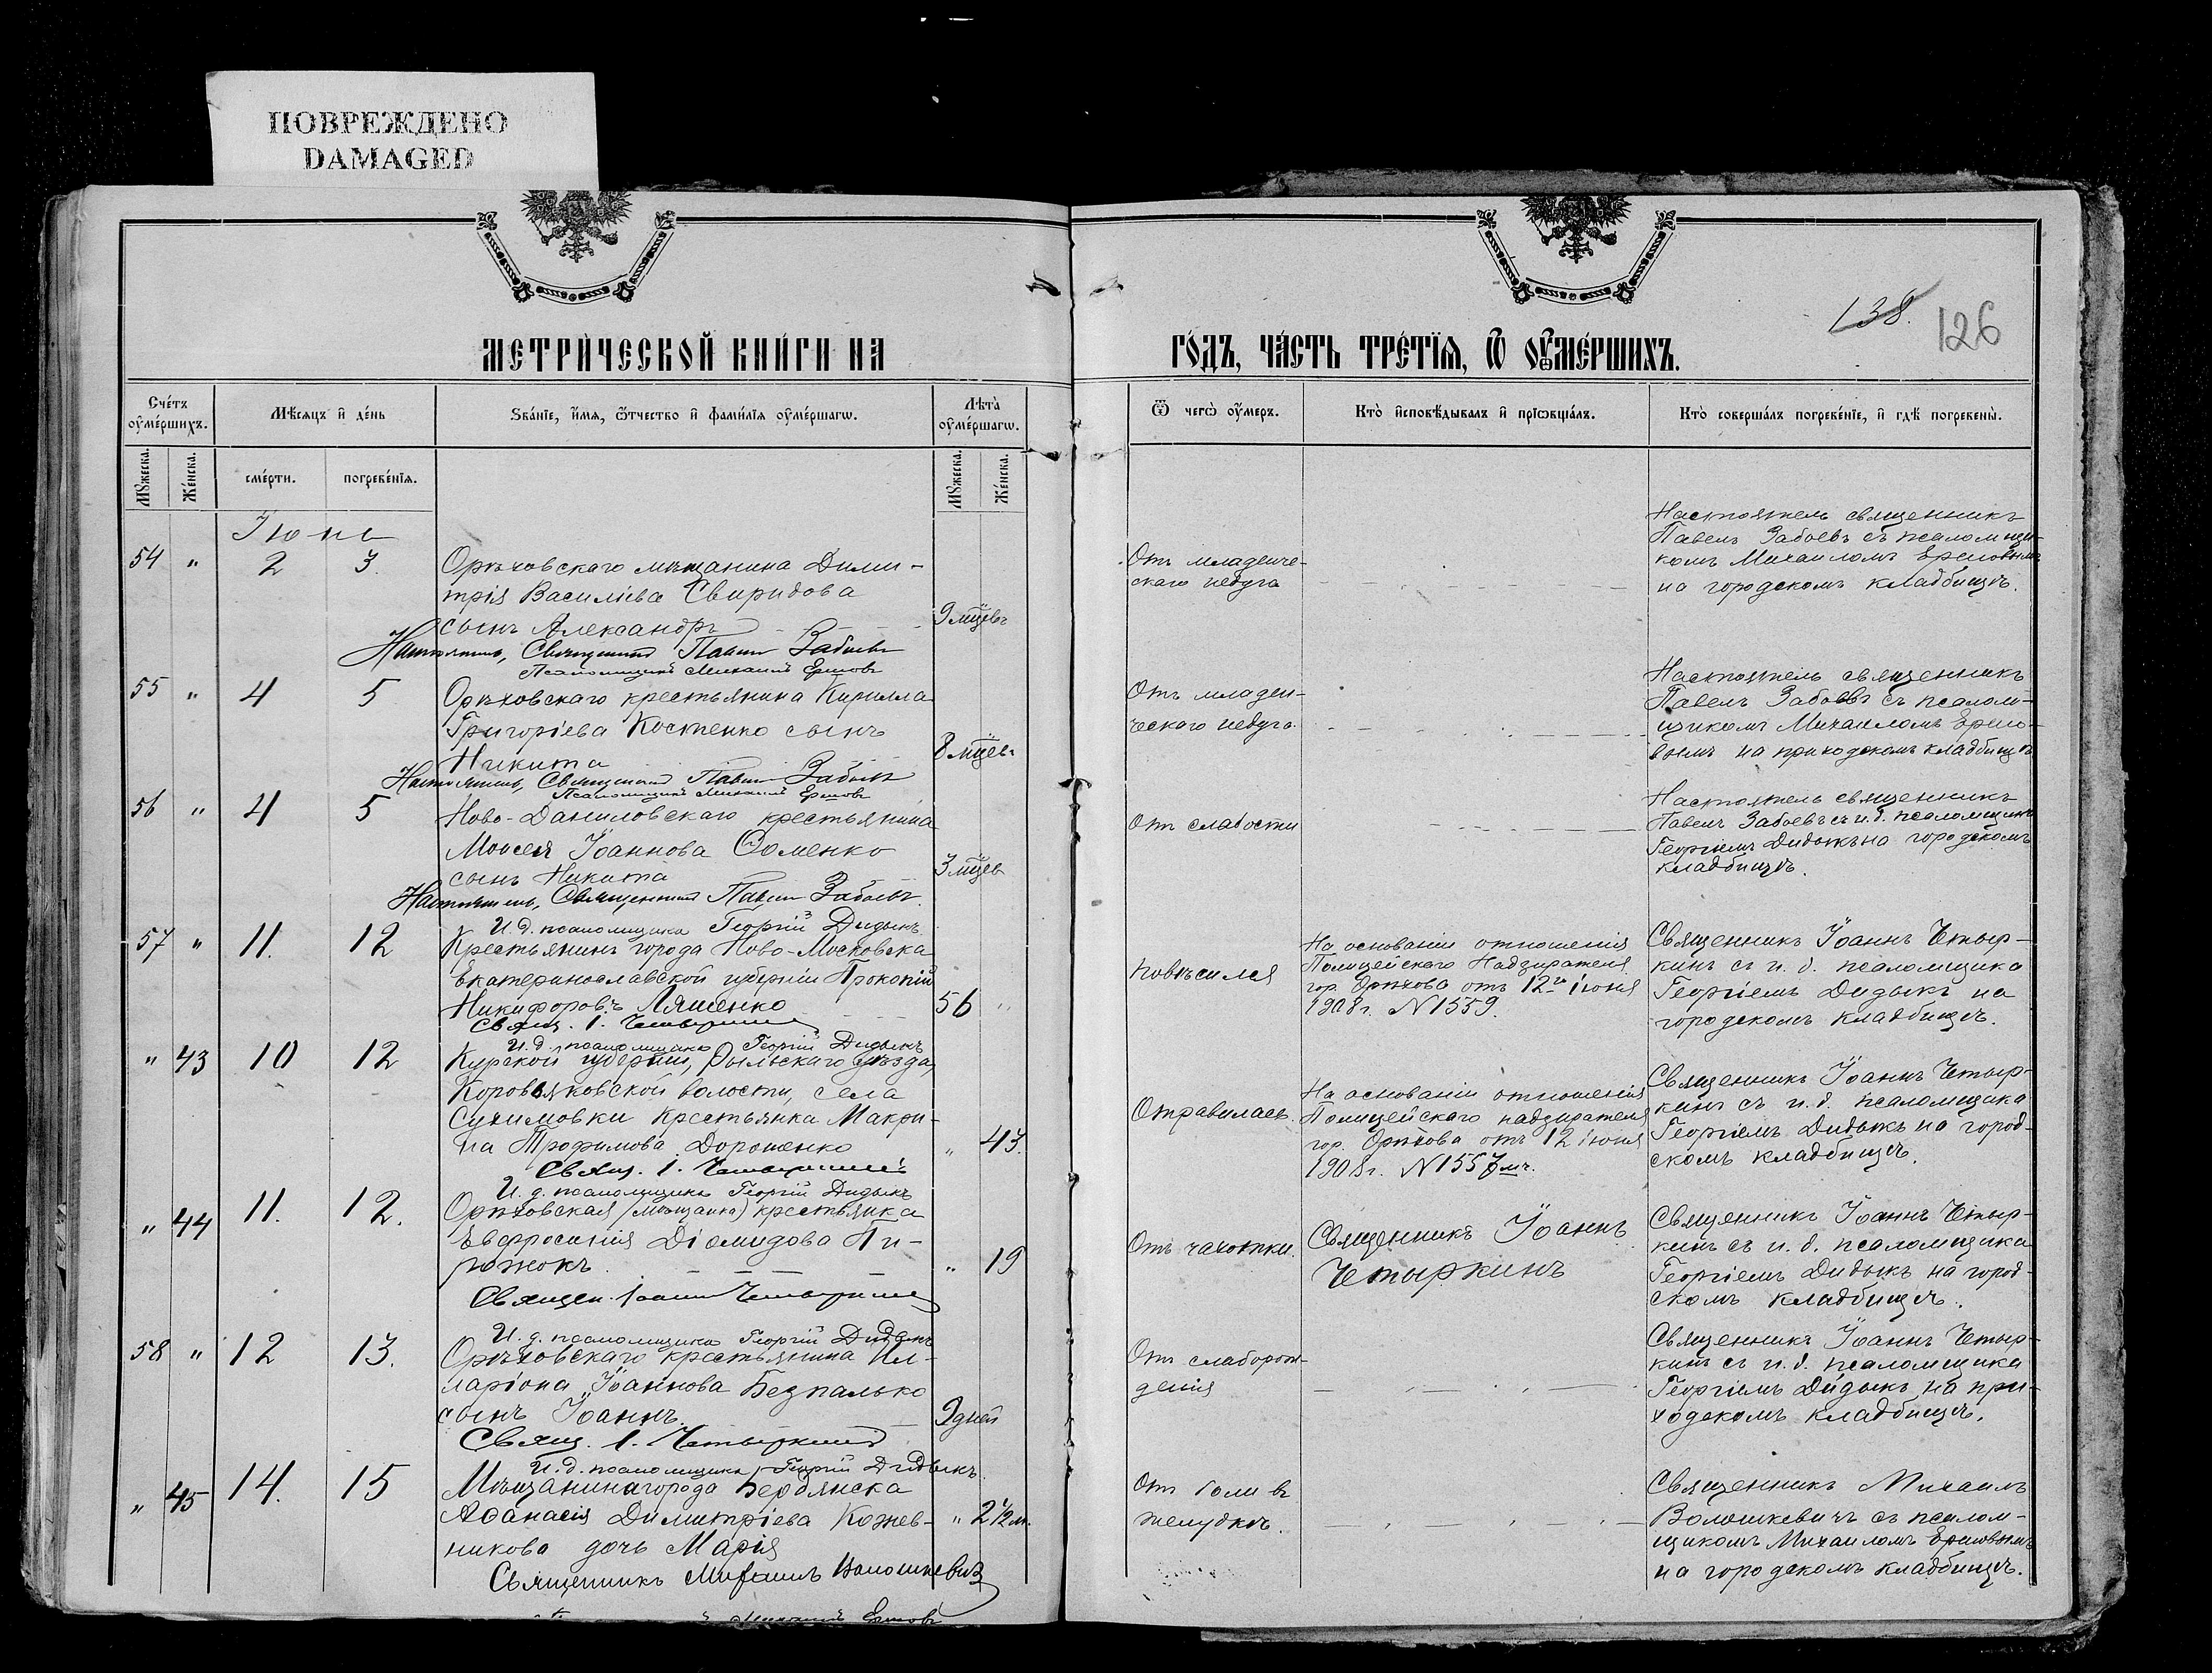 ПОВРЕЖДЕНО
DAMAGED
138.
126
МЕТРИ́ЧЕСКОЙ КНИ́ГИ НА
ГО́ДЪ, ЧА́СТЬ ТРЕ́ТЇЯ, Ѿ ОУ҆МЕ́РШИХЪ.
Счѐтъ оу҆ме́ршихъ.
Мѣ́сяцъ и҆ де́нь
Ѕва́нїе, и҆́мя, ѻ҆́тчество и҆ фами́лїя оу҆ме́ршагѡ.
Лѣ́та оу҆ме́ршагѡ.
Ѿ чегѡ̀ оу҆́меръ.
Кто̀ и҆сповѣ́дывалъ и҆ прїѡбща́лъ.
Кто̀ соверша́лъ погребе́нїе, и҆ гдѣ̀ погребены̀.
Му́жеска.
Же́нска.
сме́рти.
погребе́нїя.
Му́жеска.
Же́нска.
Іюнь
54 " 2 3.
Орѣховскаго мѣщанина Дими-
трія Василіева Свиридова
сынъ Александръ
9 мцевъ
Настоятель, Священникъ Павелъ Забоевъ
Псаломщикъ Михаилъ Ершовъ
Отъ младенче-
скаго недуга
Настоятель священникъ
Павелъ Забоевъ съ псаломщи-
комъ Михаиломъ Ершовымъ
на городскомъ кладбищѣ.
55 " 4 5
Орѣховскаго крестьянина Кирилла
Григоріева Костенко сынъ
Никита
8 мцевъ
Настоятель, Священникъ Павелъ Забоевъ
Псаломщикъ Михаилъ Ершовъ
Отъ младен-
ческаго недуга.
Настоятель священникъ
Павелъ Забоевъ съ псалом-
щикомъ Михаиломъ Ершо-
вымъ на приходскомъ кладбищѣ
56 " 4 5
Ново-Даниловскаго крестьянина
Моисея Іоаннова Ѳоменко
сынъ Никита
3 мцев
Настоятель, Священникъ Павелъ Забоевъ.
И. д. псаломщика Георгій Дидыкъ.
Отъ слабости
Настоятель священникъ
Павелъ Забоевъ съ и.д. псаломщика
Георгіемъ Дидыкъ на городскомъ
кладбищѣ.
57 " 11. 12
Крестьянинъ города Ново-Московска
Екатеринославской губерніи Прокопій
Никифоровъ Ляшенко
56 "
Свящ. І. Четыркинъ
И. д. псаломщика Георгій Дидыкъ
повѣсился
На основаніи отношенія
Полицейскаго Надзирателя
гор. Орѣхова отъ 12го іюня
1908 г. N 1559.
Священникъ Іоаннъ Четыр-
кинъ съ и. д. псаломщика
Георгіемъ Дидыкъ на
городскомъ кладбищѣ.
" 43 10 12
Курской губерніи, Рыльскаго уѣзда,
Коровяковской волости, села
Сухимовки крестьянка Макри-
на Трофимова Дорошенко
" 43.
Свящ. І. Четыркинъ
И. д. псаломщика Георгій Дидыкъ
Отравилась
На основаніи отношенія
Полицейскаго надзирателя
гор. Орѣхова отъ 12 іюня
1908 г. N 1557
Священникъ Іоаннъ Четыр-
кинъ съ и. д. псаломщика
Георгіемъ Дидыкъ на город-
скомъ кладбищѣ.
" 44 11. 12.
Орѣховская (мѣщанка) крестьянка
Евфросинія Діомидова Пи-
рожокъ
" 19
Священ. Іоаннъ Четыркинъ
И. д. псаломщика Георгій Дидыкъ
Отъ чахотки.
Священникъ Іоаннъ
Четыркинъ
Священникъ Іоаннъ Четыр-
кинъ съ и. д. псаломщика
Георгіемъ Дидыкъ на город-
скомъ кладбищѣ.
58 " 12 13.
Орѣховскаго крестьянина Ил-
ларіона Іоаннова Безпалько
сынъ Іоаннъ.
9 дней
Свящ. І. Четыркинъ
И. д. псаломщика Георгій Дидыкъ.
Отъ слаборож-
денія
Священникъ Іоаннъ Четыр-
кинъ съ и. д. псаломщика
Георгіемъ Дидыкъ на при-
ходскомъ кладбищѣ.
" 45 14. 15
Мѣщанина города Бердянска
Аѳанасія Димитріева Кожев-
никова дочь Марія
" 2 1/2 м.
Священникъ Михаилъ Волошкевичъ
Михаилъ Ершовъ
Отъ боли въ
желудкѣ.
Священникъ Михаилъ
Волошкевичъ съ псалом-
щикомъ Михаиломъ Ершовымъ
на городскомъ кладбищѣ.